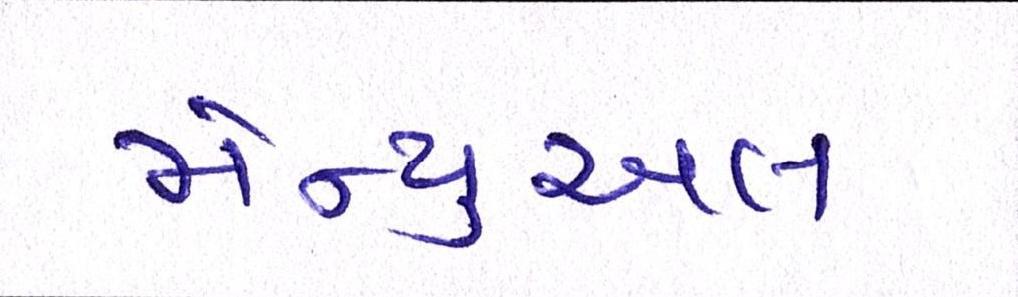 મેન્યુઅલ